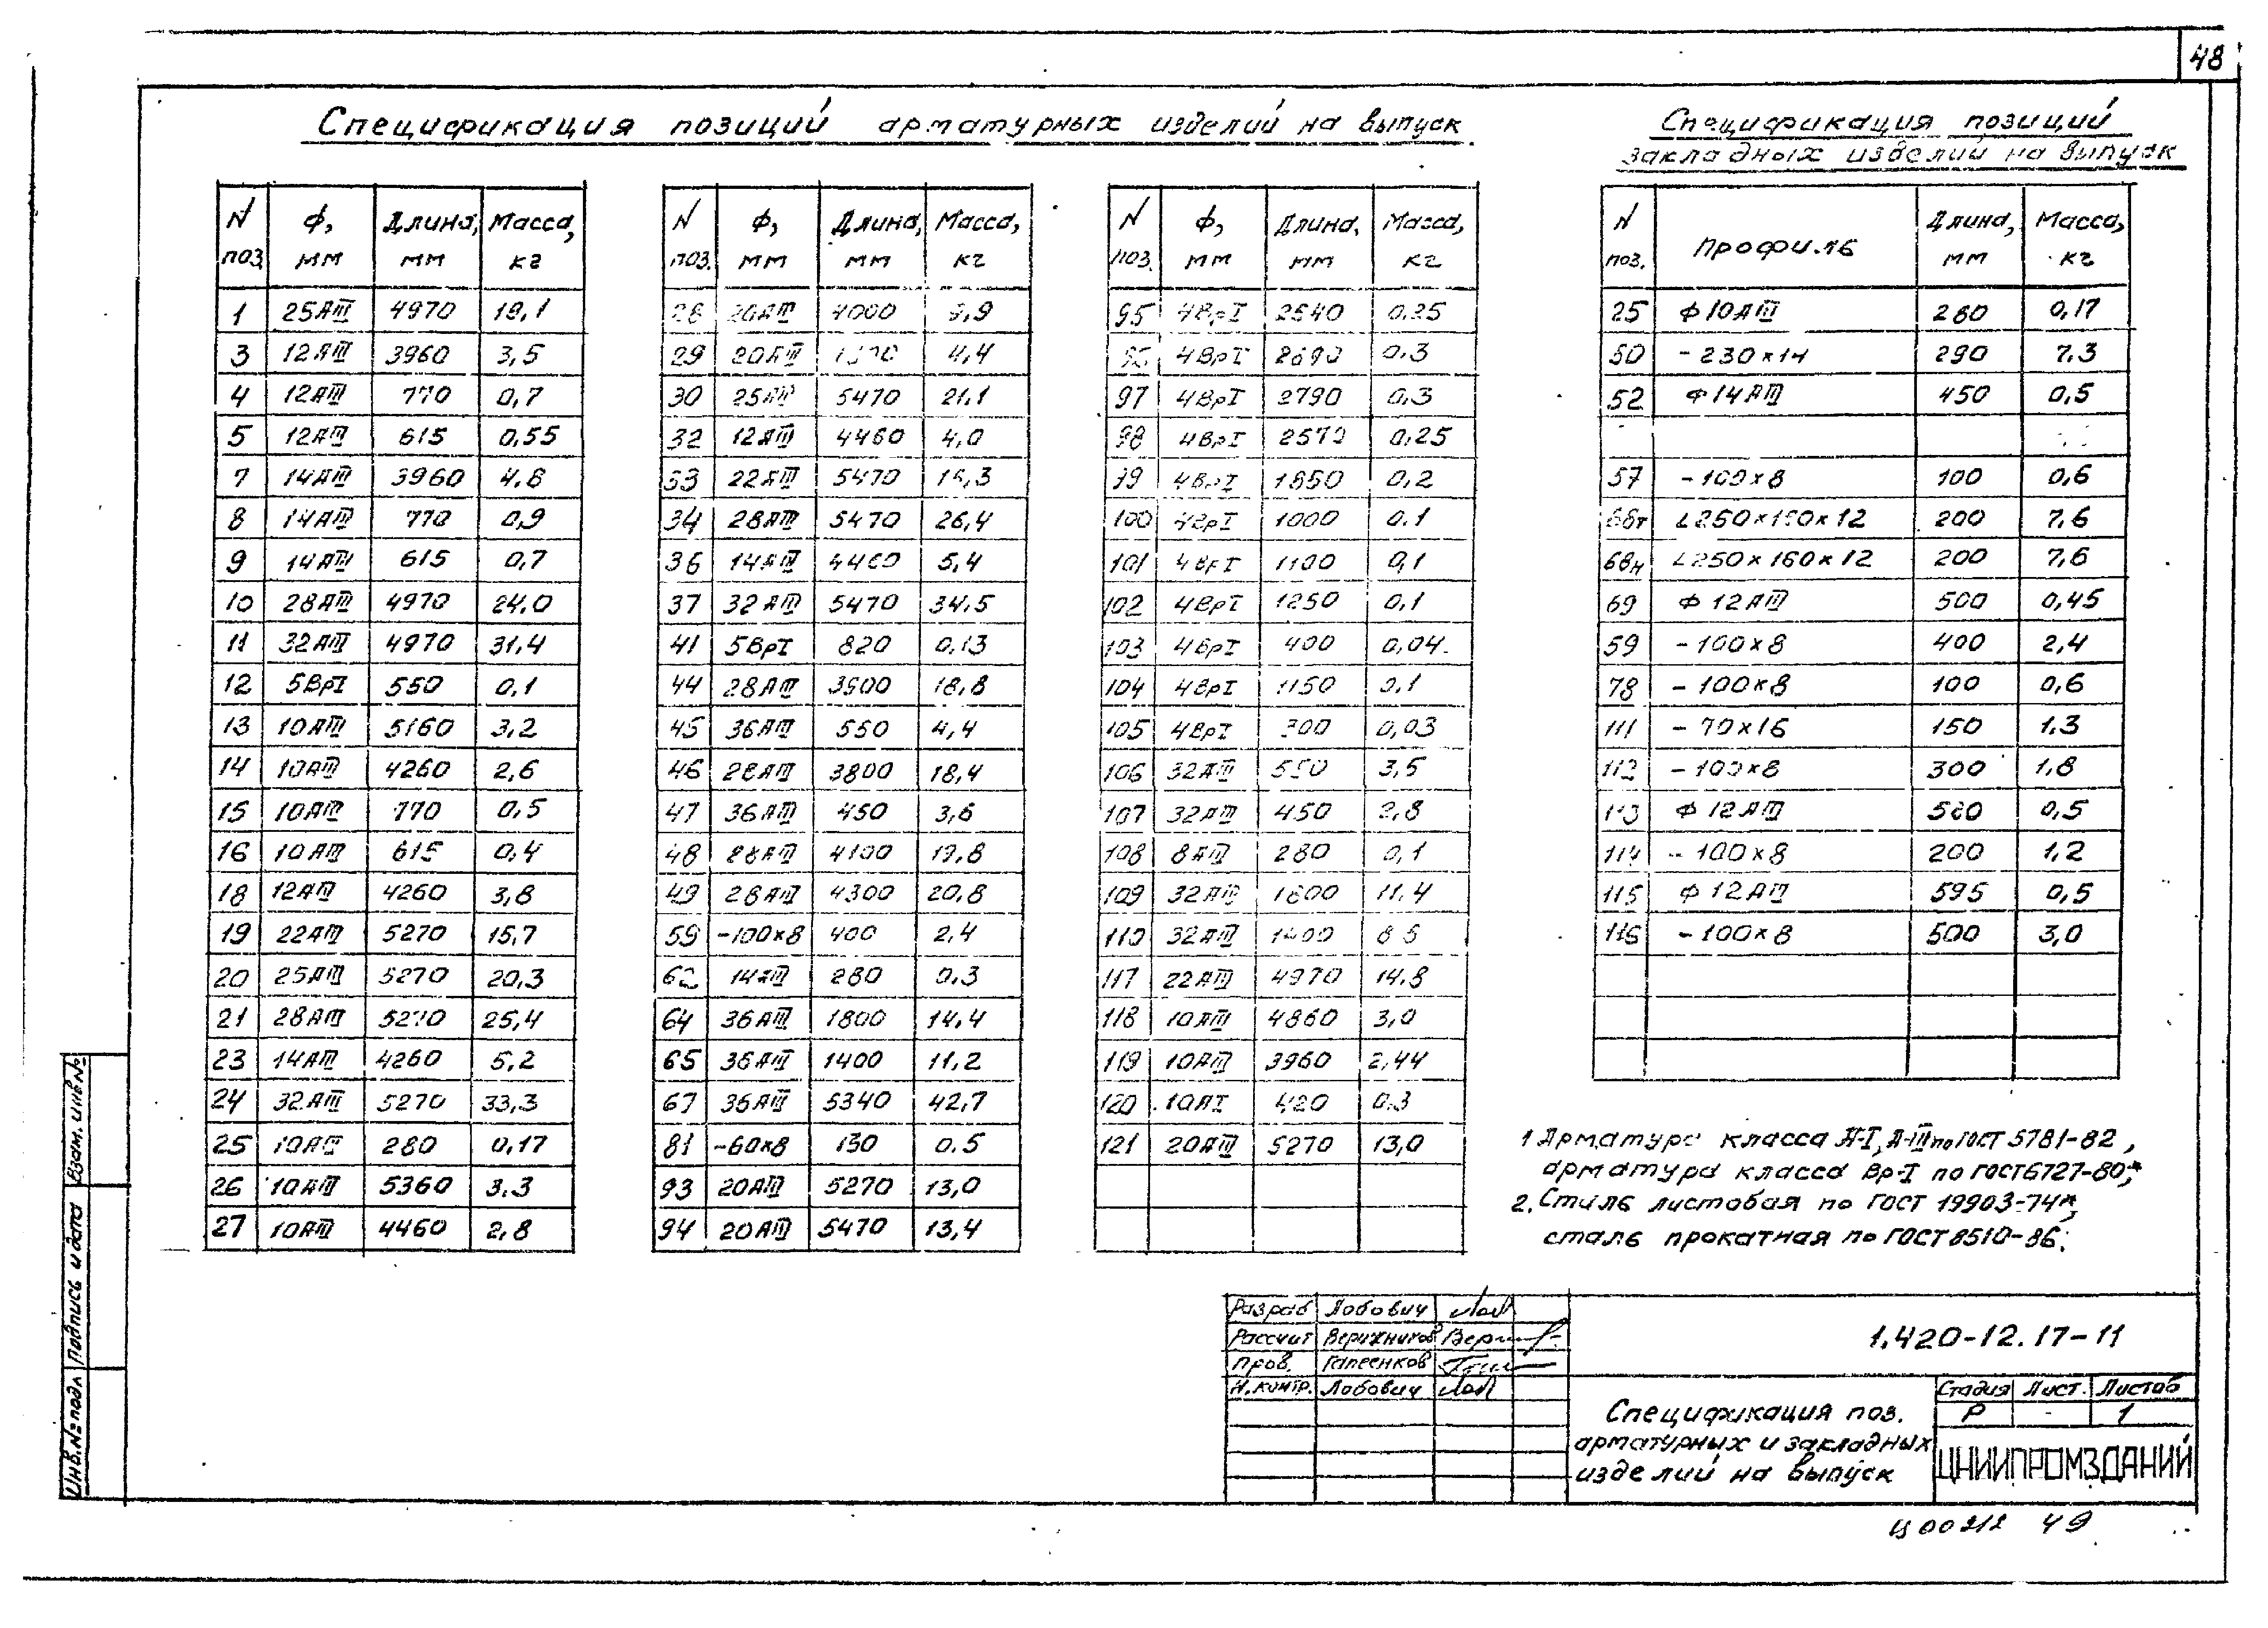 48
Спецификация позиций арматурных изделий на выпуск
N поз. Ф, мм Длина, мм Масса, кг
1 25АIII 4970 19,1
3 12АIII 3960 3,5
4 12АIII 770 0,7
5 12АIII 615 0,55
7 14АIII 3960 4,8
8 14АIII 770 0,9
9 14АIII 615 0,7
10 28АIII 4970 24,0
11 32АIII 4970 31,4
12 5ВрI 550 0,1
13 10АIII 5160 3,2
14 10АIII 4260 2,6
15 10АIII 770 0,5
16 10АIII 615 0,4
18 12АIII 4260 3,8
19 22АIII 5270 15,7
20 25АIII 5270 20,3
21 28АIII 5270 25,4
23 14АIII 4260 5,2
24 32АIII 5270 33,3
25 10АIII 280 0,17
26 10АIII 5360 3,3
27 10АIII 4460 2,8
N поз. Ф, мм Длина, мм Масса, кг
28 20АIII 4000 9,9
29 20АIII 4,4
30 25АIII 5470 21,1
32 12АIII 4460 4,0
33 22АIII 5470 16,3
34 28АIII 5470 26,4
36 14АIII 4460 5,4
37 32АIII 5470 34,5
41 5ВрI 820 0,13
44 28АIII 3900 18,8
45 36АIII 550 4,4
46 28АIII 3800 18,4
47 36АIII 450 3,6
48 28АIII 4100 19,8
49 28АIII 4300 20,8
59 -100×8 400 2,4
62 14АIII 280 0,3
64 36АIII 1800 14,4
65 36АIII 1400 11,2
67 36АIII 5340 42,7
81 -60×8 130 0,5
93 20АIII 5270 13,0
94 20АIII 5470 13,4
N поз. Ф, мм Длина, мм Масса, кг
95 4ВрI 2540 0,25
96 4ВрI 2690 0,3
97 4ВрI 2790 0,3
98 4ВрI 2570 0,25
99 4ВрI 1850 0,2
100 4ВрI 1000 0,1
101 4ВрI 1100 0,1
102 4ВрI 1250 0,1
103 4ВрI 400 0,04
104 4ВрI 1150 0,1
105 4ВрI 300 0,03
106 32АIII 550 3,5
107 32АIII 450 2,8
108 8АIII 280 0,1
109 32АIII 1800 11,4
110 32АIII 1400 8 5
117 22АIII 4970 14,8
118 10АIII 4860 3,0
119 10АIII 3960 2,44
120 10АI 420 0,3
121 20АIII 5270 13,0
Спецификация позиций
закладных изделий на выпуск
N поз. Профиль Длина, мм Масса, кг
25 Ф10АIII 280 0,17
50 -230×14 290 7,3
52 Ф14АIII 450 0,5
57 -100×8 100 0,6
68т L250×160×12 200 7,6
68н L250×160×12 200 7,6
69 Ф12АIII 500 0,45
59 -100×8 400 2,4
78 -100×8 100 0,6
111 -70×16 150 1,3
112 -100×8 300 1,8
113 Ф12АIII 560 0,5
114 -100×8 200 1,2
115 Ф12АIII 595 0,5
116 -100×8 500 3,0
1 Арматура класса А-I, А-III по ГОСТ 5781-82,
арматура класса Вр-I по ГОСТ 6727-80*;
2. Сталь листовая по ГОСТ 19903-74*,
сталь прокатная по ГОСТ 8510-86.
Разраб Лобович
Рассчит
Пров. Гапеенков
Н.контр. Лобович
1.420-12.17-11
Спецификация поз.
арматурных и закладных
изделий на выпуск
Стадия Лист. Листов
Р - 1
ЦНИИПРОМЗДАНИЙ
Ц00212 49
Взам. инв№
Подпись и дата
Инв.№подл